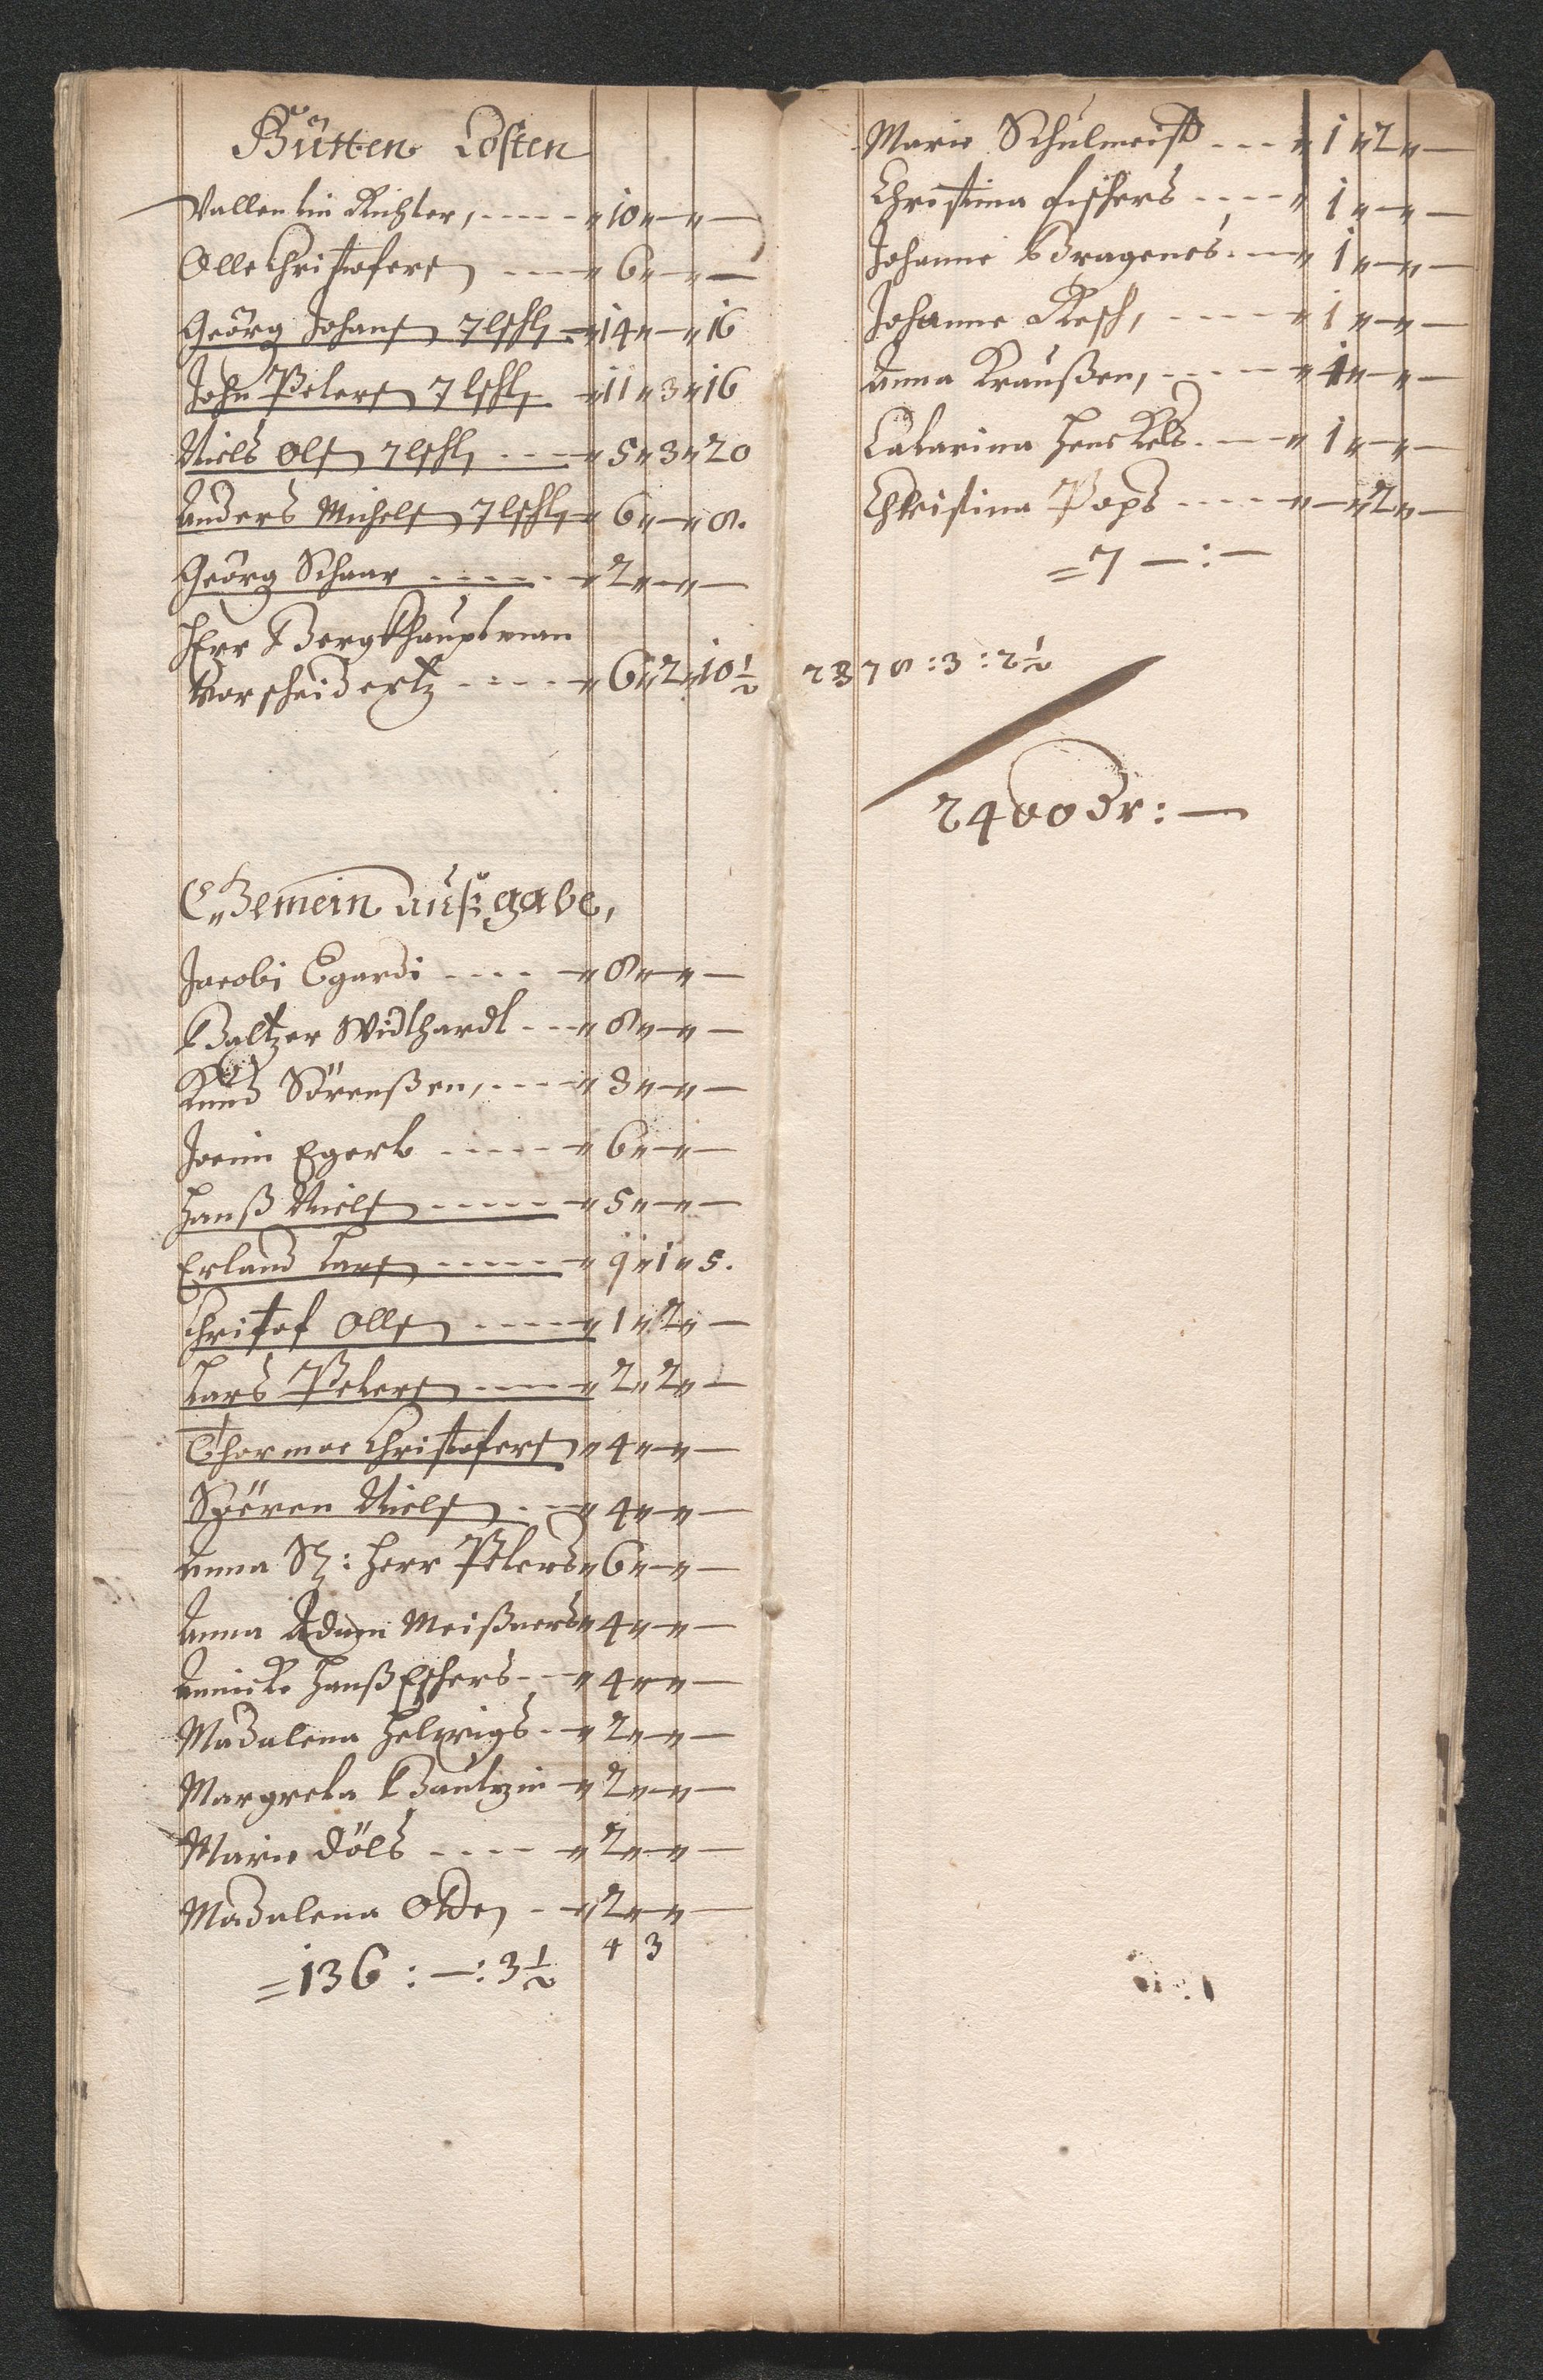 Hütten Costen
Vallentin Richter, - - - - - " 10 " — " —
Olle Christofers - - - - " 6 " — " —
Geörg Johans 7 lschl - " 14 " — " 16
John Peters 7 lschl - " 11 " 3 " 16
Niels Ols 7 lschl - - - " 5 " 3 " 20
Anders Michels 7 lschl " 6 " — " 8.
Geörg Schaar - - - - - " 2 " — " —
Herr Bergkhauptman
Vorscheidertz - - - - " 6 " 2 " 10 ½
Gemein außgabe,
Jacobi Egardi - - - - " 8 " — " —
Baltzer Widthardt - - - " 8 " — " —
Knud Sörenßen, - - - - " 3 " — " —
Jocim Egert - - - - - " 6 " — " —
Hanß Niels - - - - - " 5 " — " —
Erland Lars - - - - - " 9 " 1 " 5.
Christof Olls - - - - " 1 " 2 " —
Lars Peters - - - - " 2 " 2 " —
Thormoe Christofers " 4 " — " —
Szören Niels - - - " 4 " — " —
Anna Sz: Herr Peters " 6 " — " —
Anna Adam Meißners " 4 " — " —
Annicke Hanß Eschers - - " 4 " — " —
Madalena Helwigs - - " 2 " — " —
Margreta Bautzin - " 2 " — " —
Marie Döls - - - - " 2 " — " —
Madalena - - " 2 " — " —
4 3
= 136 : — : 3 ½
Marie Schulmeist - - - " 1 " 2 " —
Christina Fischers - - - - " 1 " — " —
Johanne Bragenes - - " 1 " — " —
Johanne Resch, - - - - - " 1 " — " —
Anna Kraußen, - - - - " 1 " — " —
Catarina Henckels - - - " 1 " — " —
Christina Pops - - - - " — " 2 " —
= 7 — : —
2378 : 3 : 2 ½
2400 dr : —